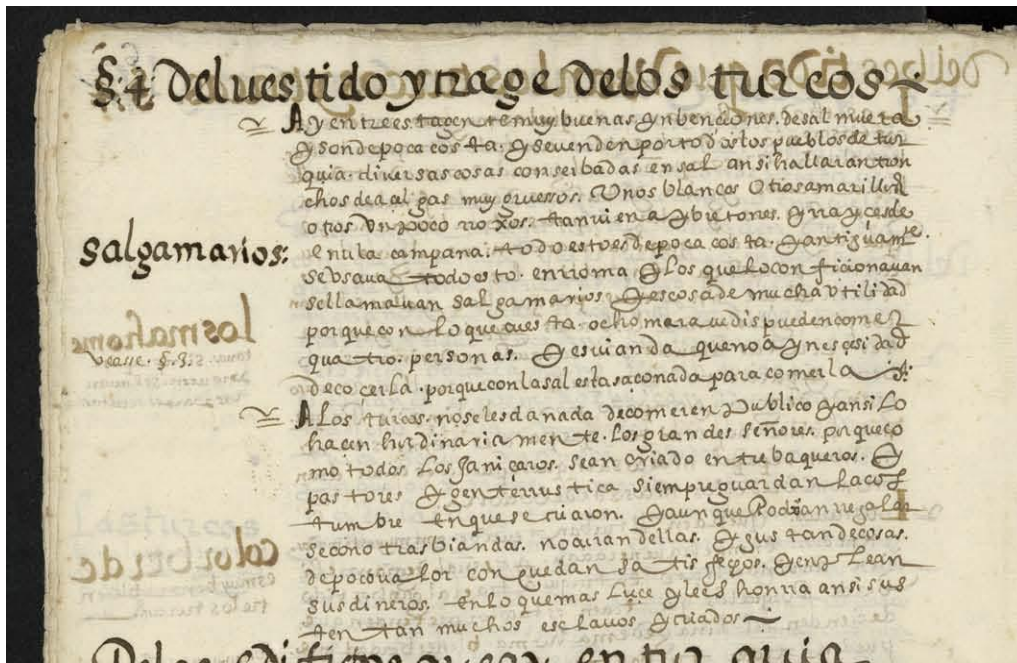 §. 4. Del uestido y trage de los turcos
Ay entre esta gente muy buenas ynbenciones. de salmuera
y son de poca costa. y se venden por todos los pueblos de tur
quia. diversas cosas conserbadas en sal ansi hallaran tron
chos de acelgas muy gruesos. Unos blancos Otros amarillos
otros Un poco rroxos. tanvien ay bretones. y rrayces de
enula campana. todo esto es de poca costa. y antiguamte.
se vsaua todo esto. en rroma y los que lo conficionauan
salgamarios:
se llamauan salgamarios y es cosa de mucha vtilidad
porque con lo que cuesta. ocho marauedis pueden comer
vease. §. 3.
quatro. personas. y es uianda que no ay nescesidad
de coçerla. porque con la sal esta saconada para comerla
A Los turcos. no se les da nada de comer en Publico y ansi Lo
hacen hordinariamente. los grandes señores. porque co
mo todos Los Janiçaros. se an criado entre baqueros. y
pastores y gente rrustica siempre guardan la cos
tumbre en que se criaron. y aunque Podrian rregalar
se con otras biandas. no curan dellas. y gustan de cosas.
de poco valor con que dan satisfechos.
sus dineros. en lo que mas Luce y les honrra ansi sus
tentan muchos esclauos y criados
De los edificios que ay en turquia